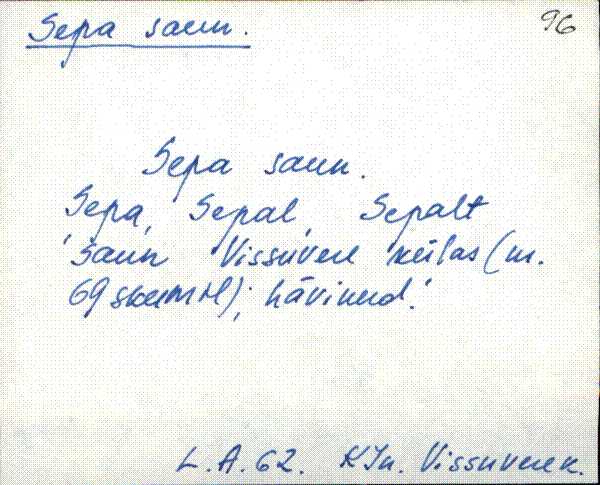 Sepa saun.
96
Sepa saun.
Sepa, Sepal, Sepalt
'Saun Vissuvere külas (m.
hävinud.'
L.A.62. KJn. Vissuvere k.